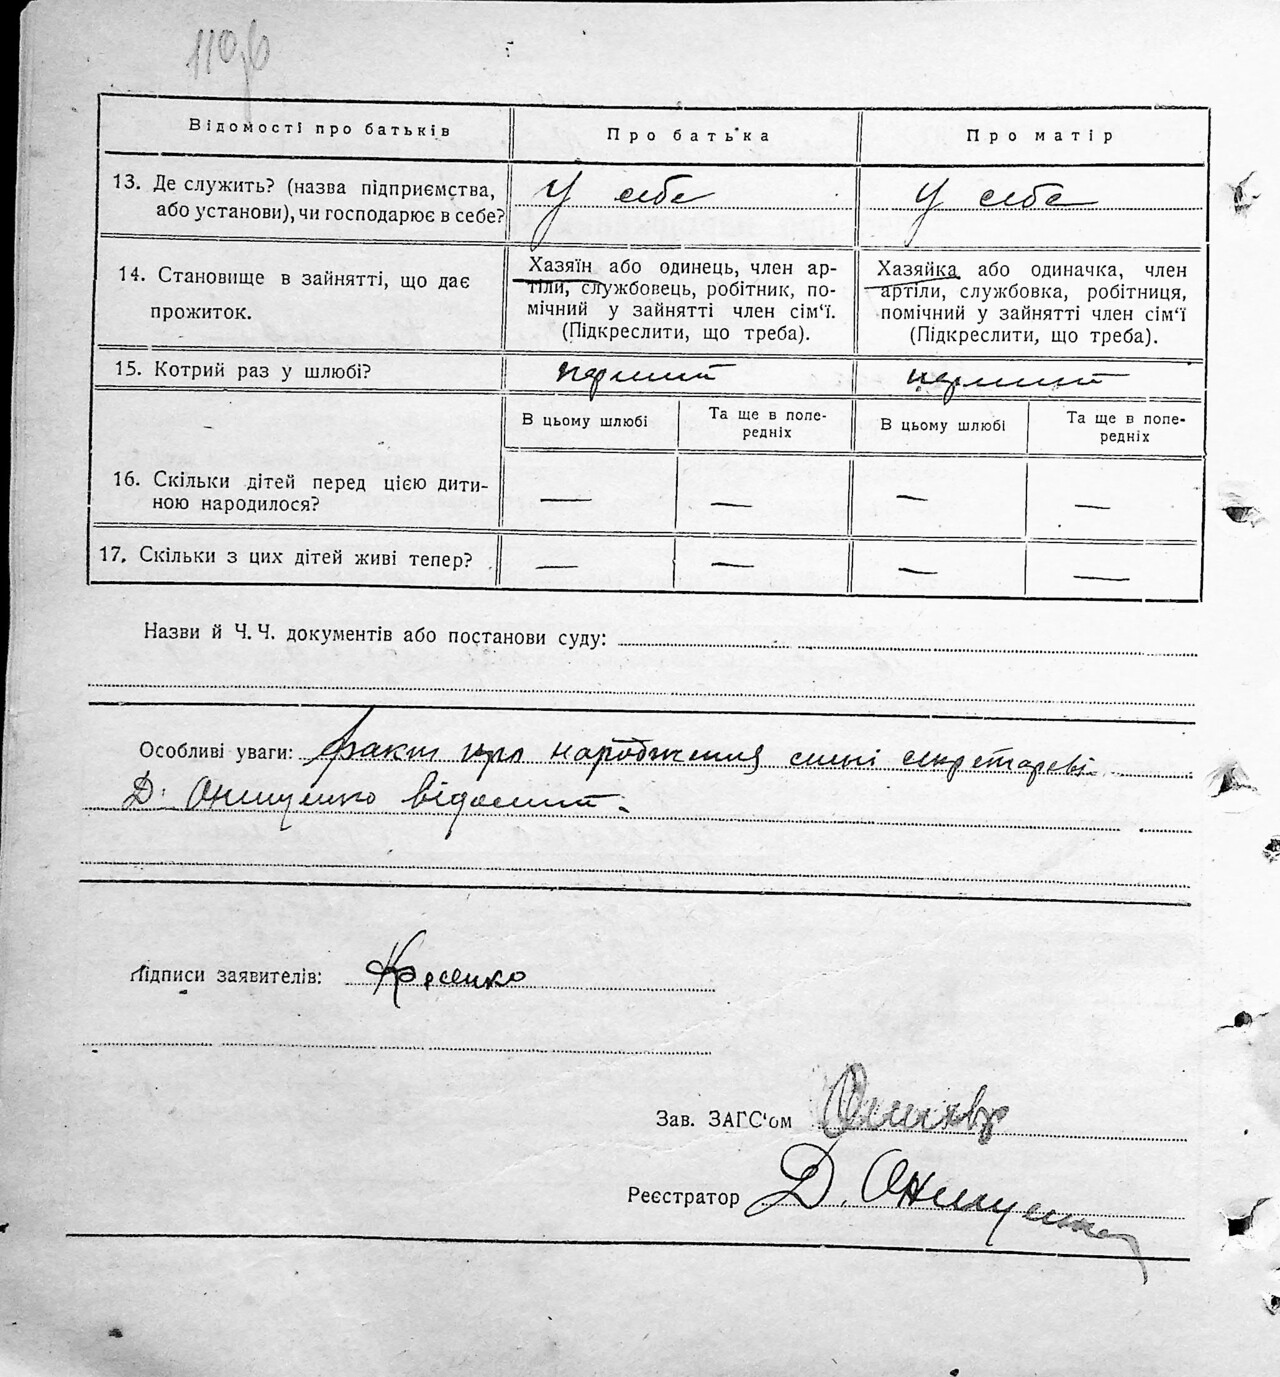 110
Відомості про батьків
Про батька
Про матір
13. Де служить? (назва підприємства,
або установи), чи господарює в себе?
У себе
У себе
14. Становище в зайнятті, що дає
прожиток.
Хазяїн або одинець, член ар-
тіли, службовець, робітник, по-
мічний у зайнятті член сім‘ї.
(Підкреслити, що треба).
Хазяйка або одиначка, член
артіли, службовка, робітниця,
помічний у зайнятті член сім‘ї
(Підкреслити, що треба).
15. Котрий раз у шлюбі?
перший
перший
В цьому шлюбі
Та ще в попе-
редніх
В цьому шлюбі
Та ще в попе-
редніх
16. Скільки дітей перед цією дити-
ною народилося?
— — — —
17. Скільки з цих дітей живі тепер?
— — — —
Назви й Ч. Ч. документів або постанови суду:
Особливі уваги: факт про народження мині секретареві
Д. Онищенко відомий.
Підписи заявителів:
Зав. ЗАГС‘ом
Реєстратор Д. Онищенко